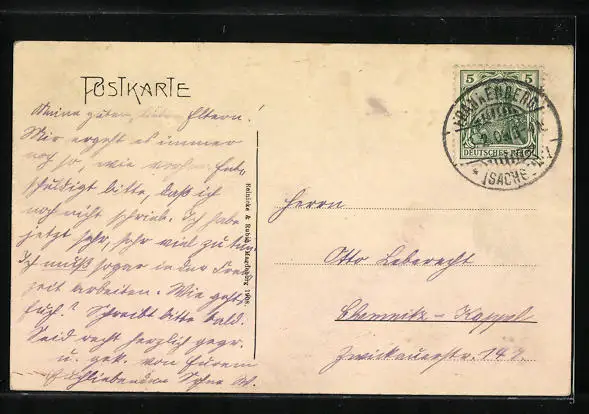 POSTKARTE
Meine guten, lieben Eltern!
Mir ergeht es immer
noch so, wie vorher. Ent-
schuldigt bitte, daß ich
noch nicht schrieb. Ich habe
jetzt sehr, sehr viel zu tun.
Ich muß sogar in der Frei-
zeit arbeiten. Wie geht's
Euch? Schreibt bitte bald.
Seid recht herzlich gegr.
u. gek. von Eurem
Euchliebenden Sohne
Reinicke & Rubin, Magdeburg 1908.
5 5
DEUTSCHES REICH
FRANKENBERG
(SACHS.)
Herrn
Otto Leberecht
Chemnitz-Kappel
Zwickauerstr.